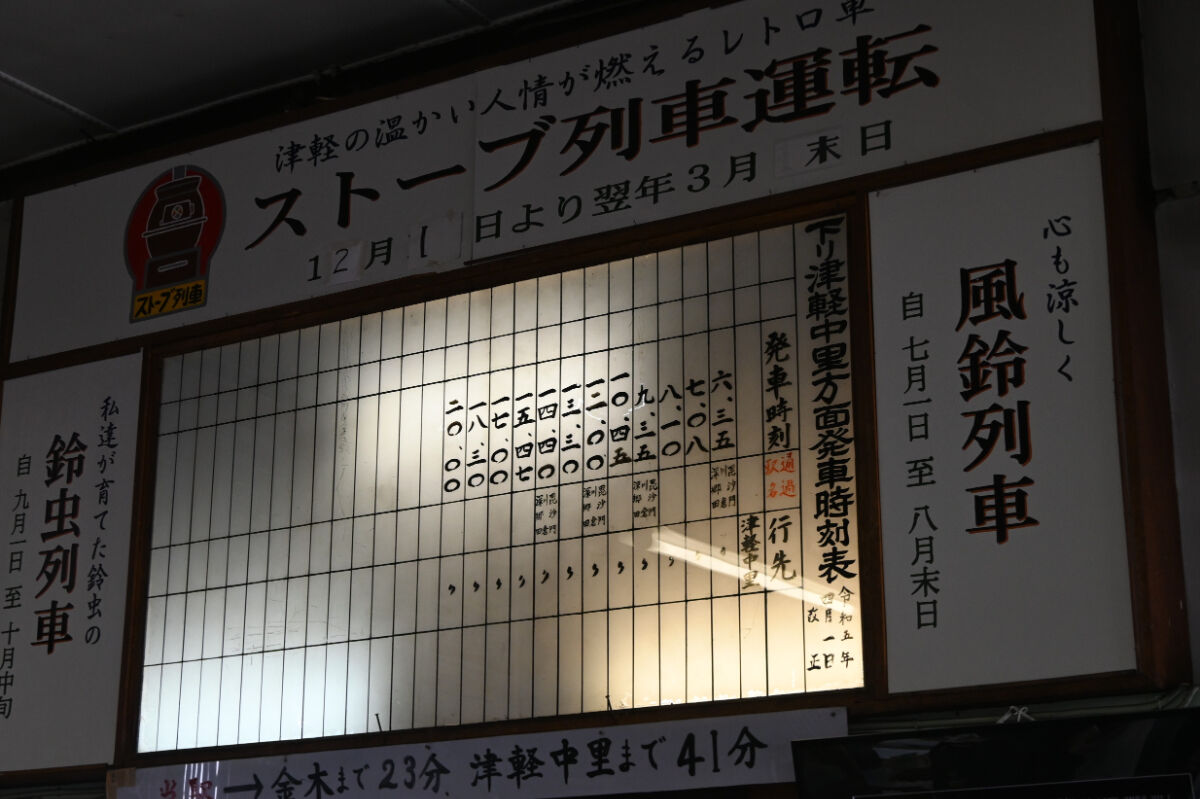 津軽の温かい人情が燃えるレトロ車
ストーブ列車運転
12月1日より翌年3月末日
ストーブ列車
心も涼しく
風鈴列車
自 七月一日 至 八月末日
下り津軽中里方面発車時刻表
令和五年
四月一日
改正
発車時刻 通過駅名 行先
六、三五 毘沙門 川倉 深郷田 津軽中里
七、〇八 〃
八、一〇 〃
九、三五 毘沙門 川倉 深郷田 〃
一〇、四五 〃
一二、〇〇 毘沙門 川倉 深郷田 〃
一三、一〇 〃
一四、四〇 毘沙門 川倉 深郷田 〃
一五、四七 〃
一七、〇〇 〃
一八、一〇 〃
二〇、〇〇 〃
私達が育てた鈴虫の
鈴虫列車
自 九月一日 至 十月中旬
当駅→金木まで23分 津軽中里まで41分